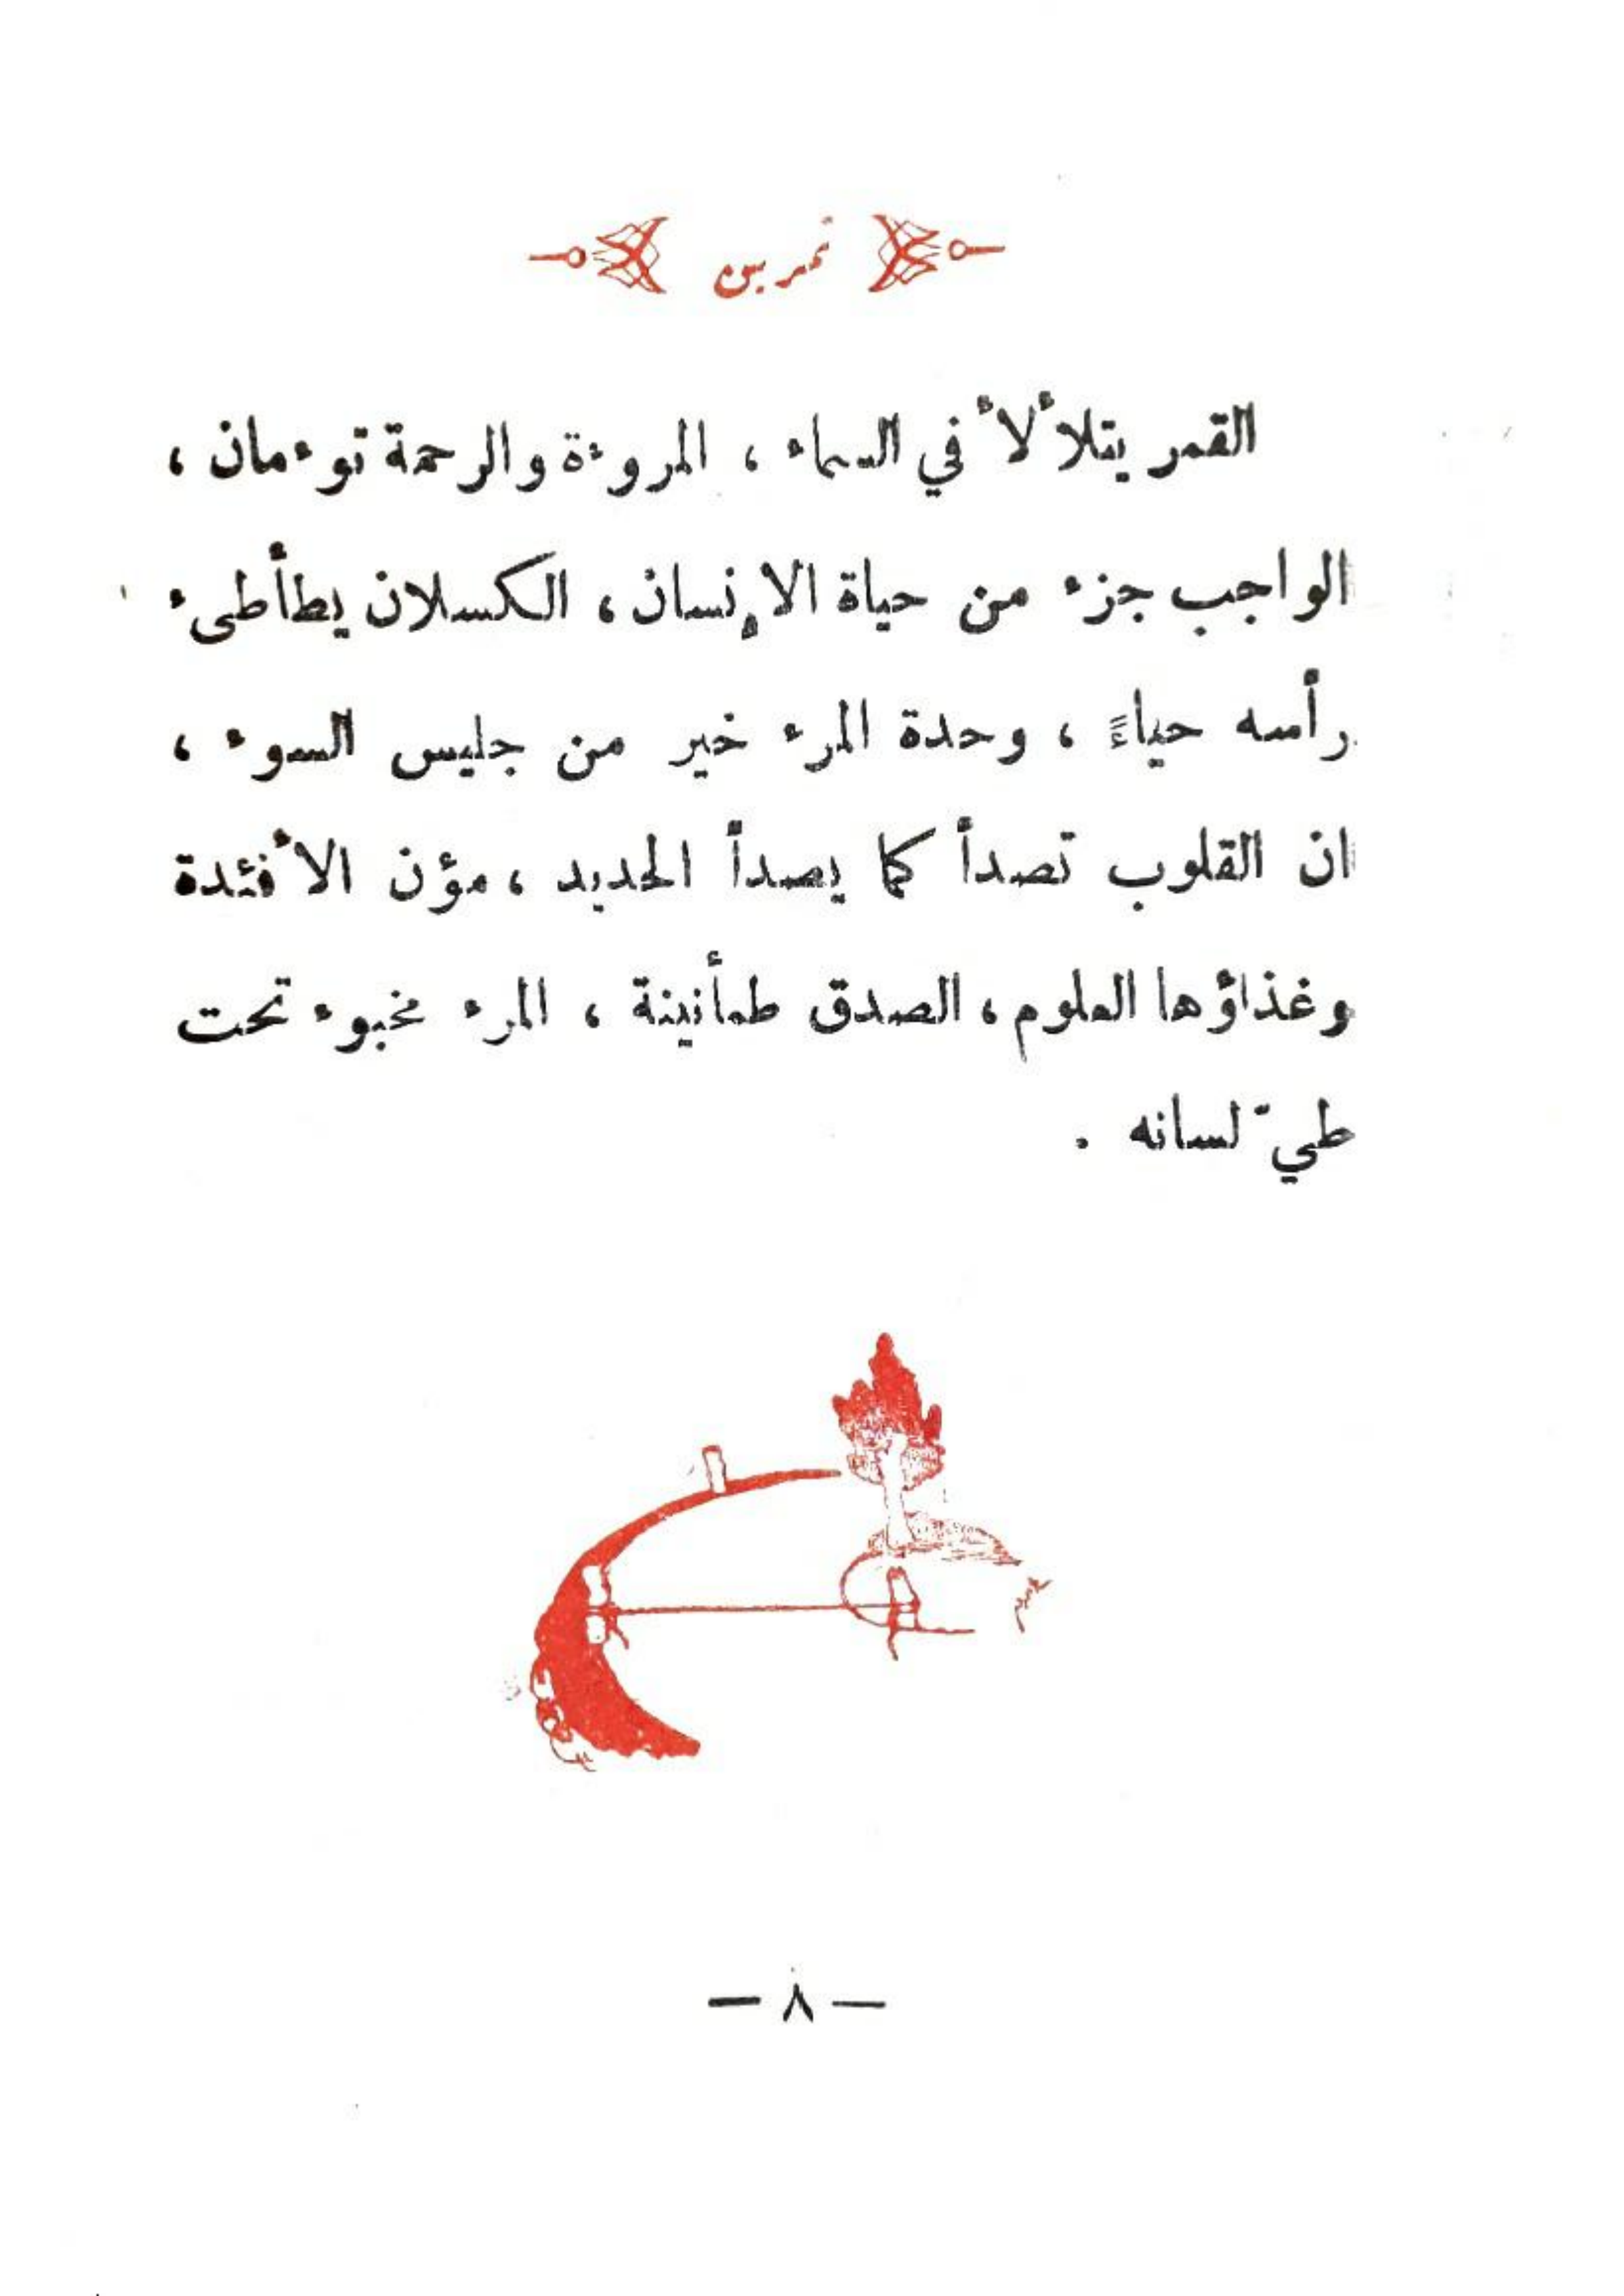 تمرين
القمر يتلألأ في السماء ، المروءة والرحمة توءمان ،
الواجب جزء من حياة الإنسان ، الكسلان يطأطىء
رأسه حياءً ، وحدة المرء خير من جليس السوء ،
ان القلوب تصدأ كما يصدأ الحديد ، مؤن الأفئدة
وغذاؤها العلوم ، الصدق طمأنينة ، المرء مخبوء تحت
طيّ لسانه .
— ٨ —